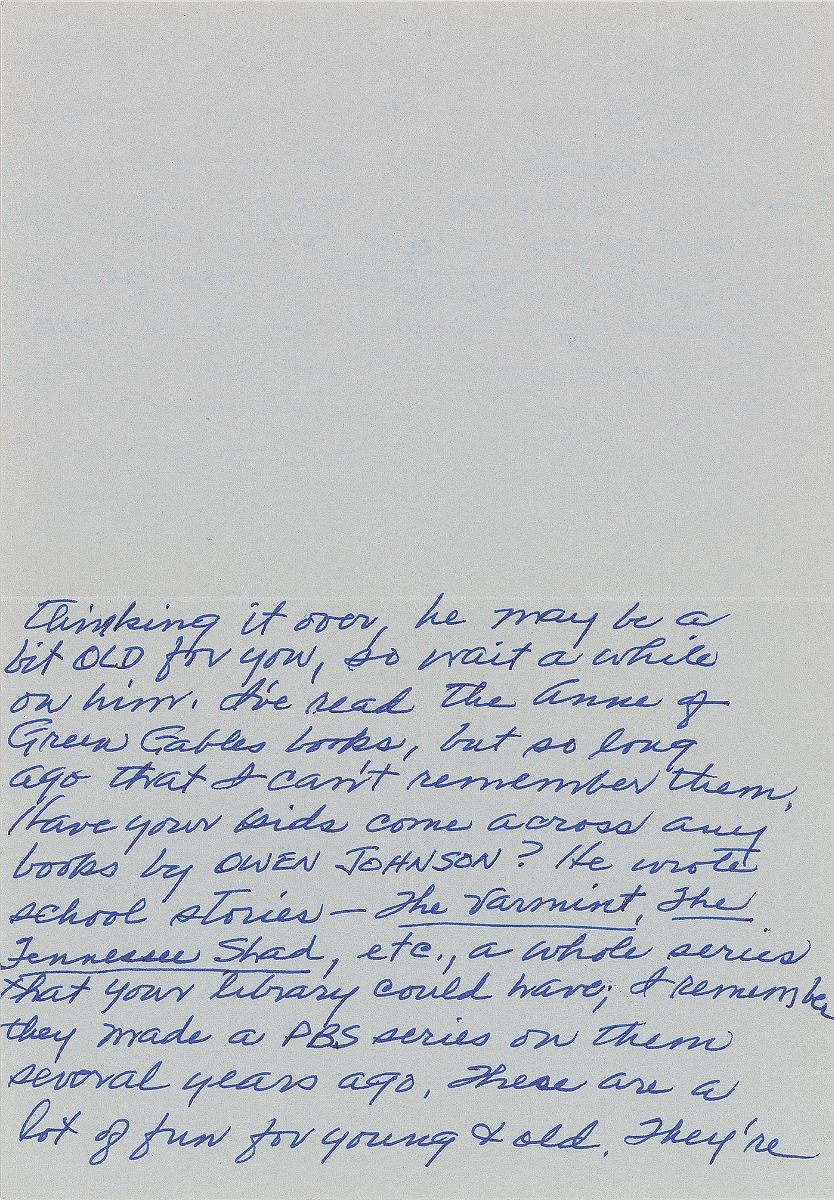 thinking it over, he may be a
bit OLD for you, so wait a while
on him. I've read the Anne of
Green Gables books, but so long
ago that I can't remember them.
Have your kids come across any
books by OWEN JOHNSON? He wrote
school stories — The Varmint, The
Tennessee Shad, etc., a whole series
that your library could have; I remember
they made a PBS series on them
several years ago. These are a
lot of fun for young & old. They're